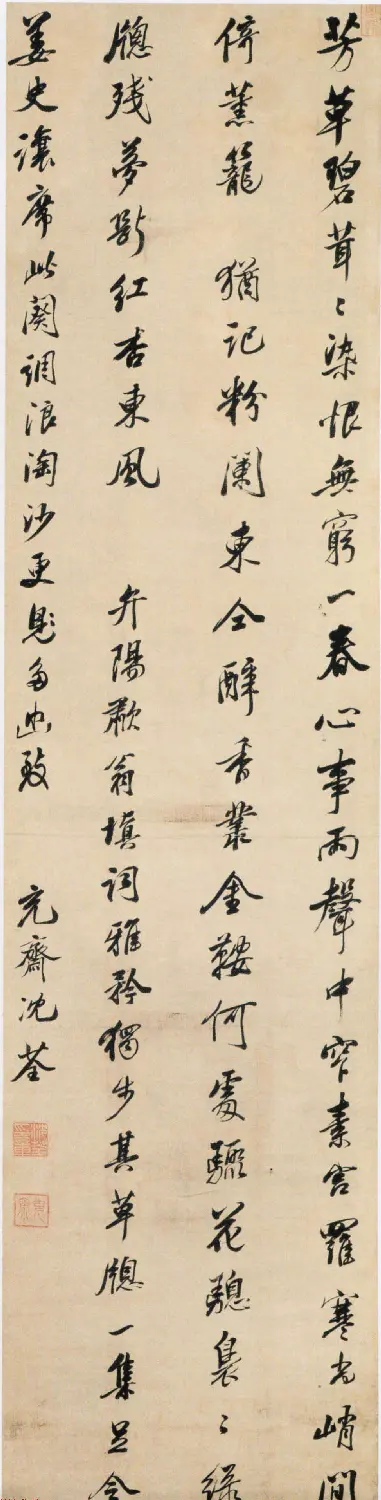 芳草碧茸〻染恨無窮一春心事雨聲中窄素宮羅寒尚峭閒
倚薰籠 猶記粉闌東仝醉香叢金鞍何處驟花驄裊〻綠
牕殘夢斷紅杏東風 弁陽歗翁填詞雅矜獨步其草牕一集足令
姜史讓席此闋調浪淘沙更多幽致 充齋沈荃